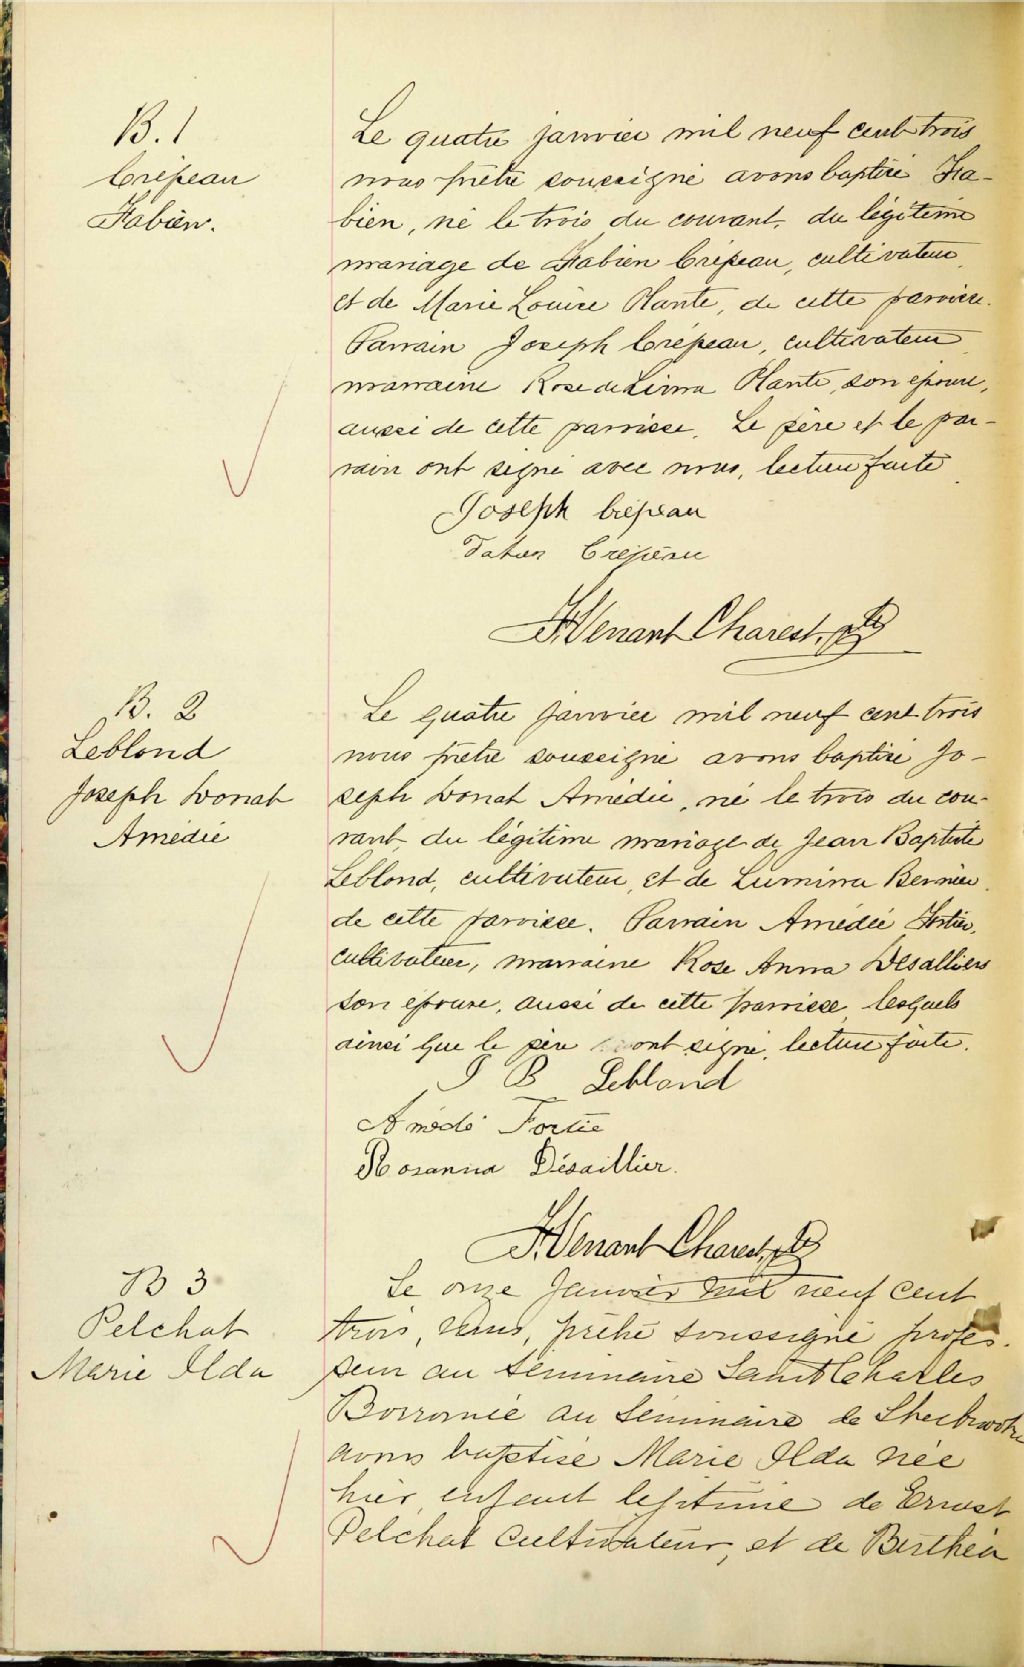 B. 1
Crépeau
Fabien.
Le quatre janvier mil neuf cent trois
nous prêtre soussigné avons baptisé Fa-
bien, né le trois du courant, du légitime
mariage de Fabien Crépeau, cultivateur,
et de Marie Louise Plante, de cette paroisse.
Parrain Joseph Crépeau, cultivateur,
marraine Rose de Lima Plante, son épouse,
aussi de cette paroisse. Le père et le par-
rain ont signé avec nous, lecture faite.
Joseph Crépeau
Fabien Crépeau
J. Venant Charest, ptre
B. 2
Leblond
Joseph Donat
Amédié
Le quatre janvier mil neuf cent trois
nous prêtre soussigné avons baptisé Jo-
seph Donat Amédié, né le trois du cou-
rant, du légitime mariage de Jean Baptiste
Leblond, cultivateur, et de Lumina Bernier,
de cette paroisse. Parrain Amédée Fortier,
cultivateur, marraine Rose Anna Desalliers
son épouse, aussi de cette paroisse, lesquels
ainsi que le père ont signé, lecture faite.
J B Leblond
Amédé Fortié
Rosanna Désaillier.
J. Venant Charest, ptre
B 3
Pelchat
Marie Ilda
Le onze Janvier mil neuf cent
trois, nous, prêtre soussigné profes-
seur au Séminaire Saint Charles
Borromée au Séminaire de Sherbrooke
avons baptisé Marie Ilda née
hier, enfant légitime de Ernest
Pelchat Cultivateur, et de Berthéa